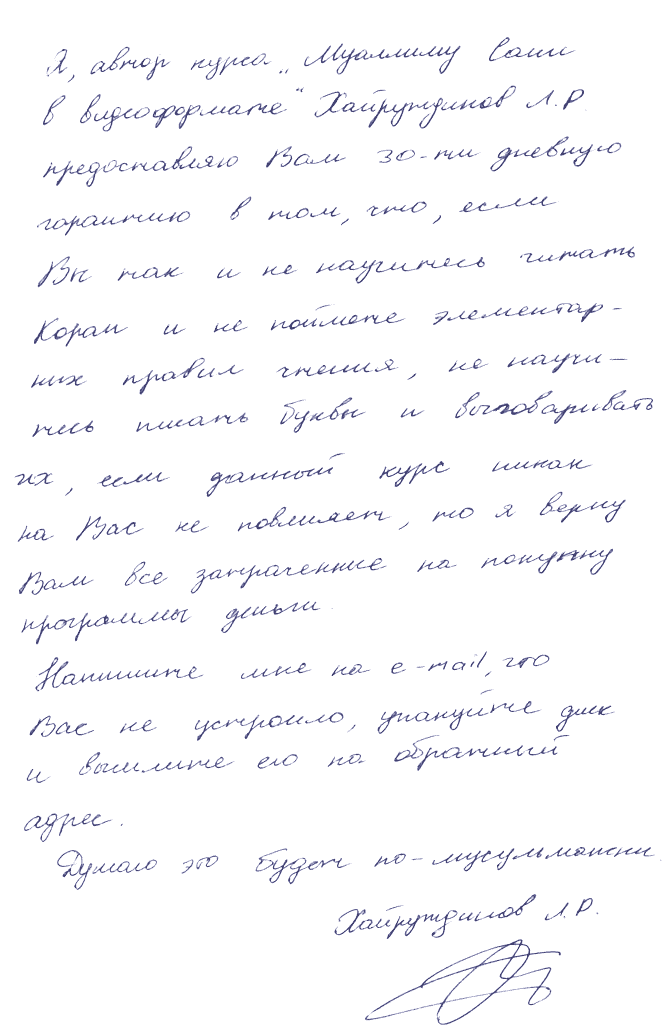 Я, автор курса „Муаллиму Сани
в видеоформате" Хайрутдинов Л.Р.
предоставляю Вам 30-ти дневную
гарантию в том, что, если
Вы так и не научитесь читать
Коран и не поймете элементар-
ных правил чтения, не научи-
тесь писать буквы и выговаривать
их, если данный курс никак
на Вас не повлияет, то я верну
Вам все затраченные на покупку
программы деньги.
Напишите мне на e-mail, что
Вас не устроило, упакуйте диск
и вышлите его на обратный
адрес.
Думаю это будет по-мусульмански.
Хайрутдинов Л.Р.